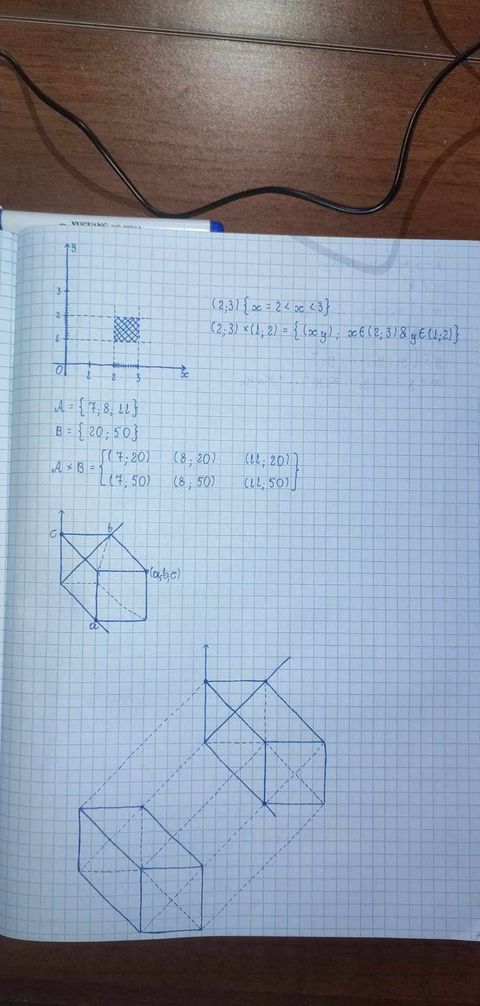 y
3
2
1
0
1
2
3
x
(2;3) {x = 2 < x < 3}
(2; 3) × (1; 2) = {(x y) ; x ∈ (2; 3) & y ∈ (1; 2)}
A = {7; 8; 11}
B = {20; 50}
A × B = {(7; 20) (8; 20) (11; 20)
(7; 50) (8; 50) (11; 50)}
c
b
(a,b,c)
a